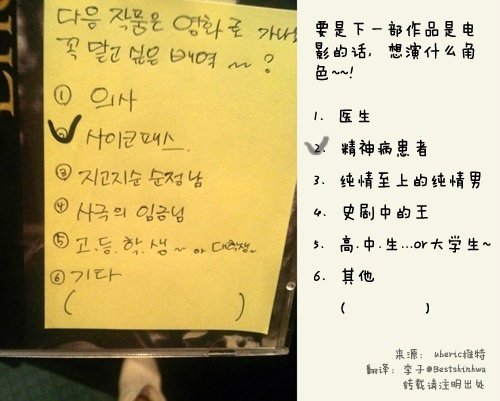 다음 작품은 영화로
꼭 맡고 싶은 배역 ~~ ?
① 의사
② 사이코패스.
③ 지고지순 순정남
④ 사극의 임금님
⑤ 고.등.학.생~ or 대학생~
⑥ 기타
( )
要是下一部作品是电
影的话，想演什么角
色~~!
1. 医生
2. 精神病患者
3. 纯情至上的纯情男
4. 史剧中的王
5. 高.中.生...or大学生~
6. 其他
( )
来源： uberic推特
翻译：李子@Bestshinhwa
转载请注明出处